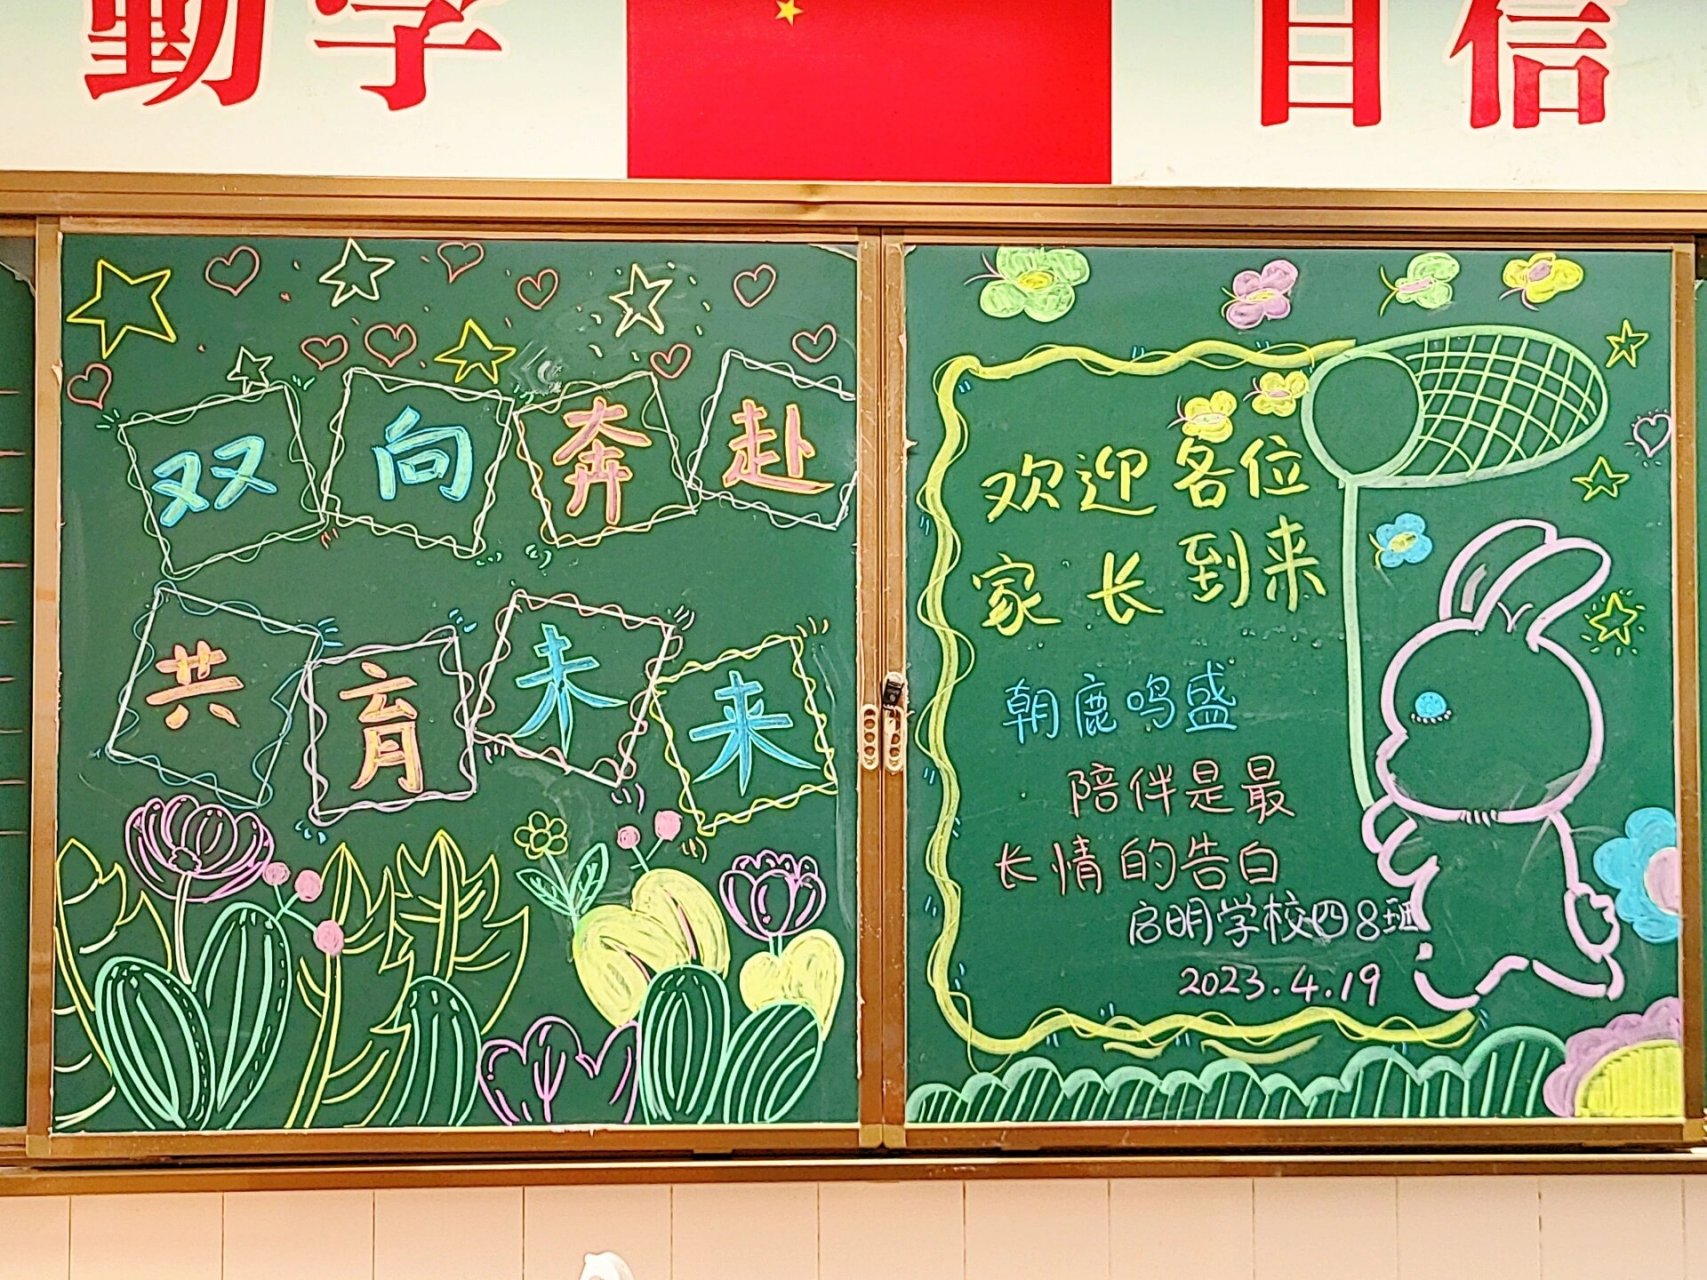 勤学
自信
双向奔赴
共育未来
欢迎各位
家长到来
朝鹿鸣盛
陪伴是最
长情的告白
启明学校四8班
2023.4.19